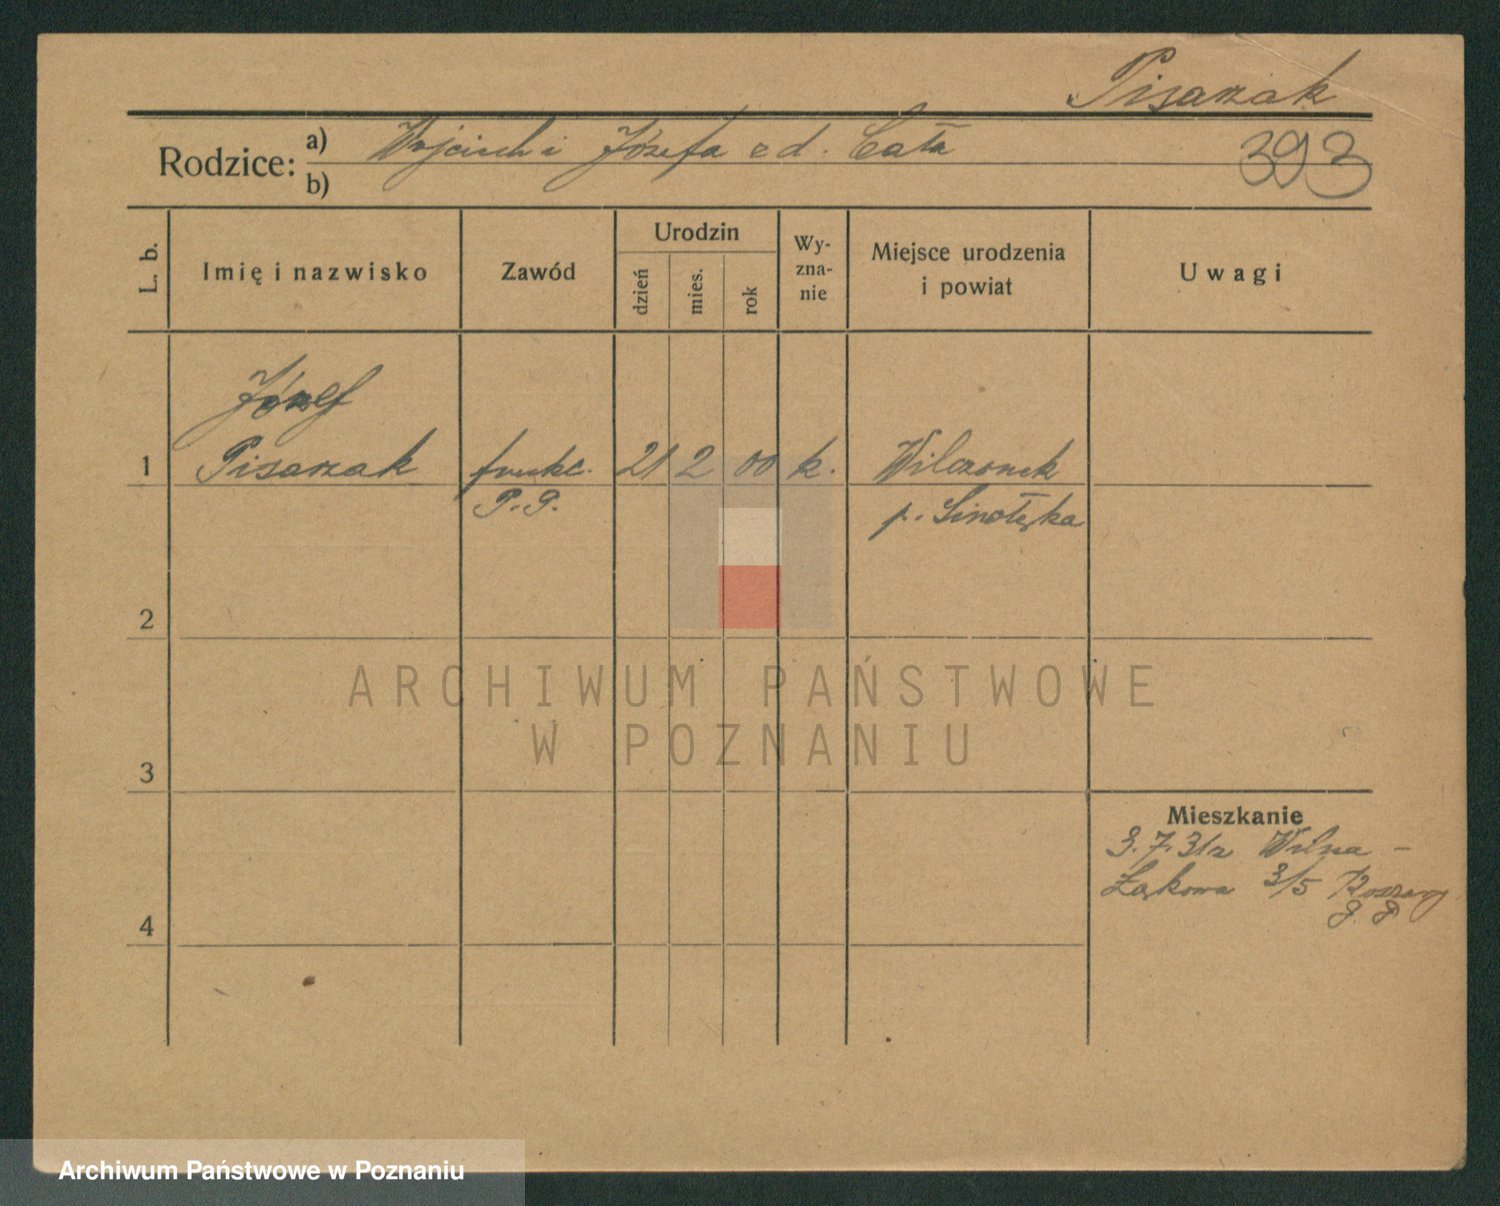 Pisarzak
393
Rodzice: a) Wojciech i Józefa z d. Cała
b)
L. b.
Imię i nazwisko
Zawód
Urodzin
dzień
mies.
rok
Wy-
zna-
nie
Miejsce urodzenia
i powiat
Uwagi
Józef
1 Pisarzak funkc. 21 2 00 k. Wilczonek
P.P. p. Sinołęka
2
3
4
Mieszkanie
3.7.31 z Wilna -
Łąkowa 3/5 Koszary
ARCHIWUM PAŃSTWOWE
W POZNANIU
Archiwum Państwowe w Poznaniu